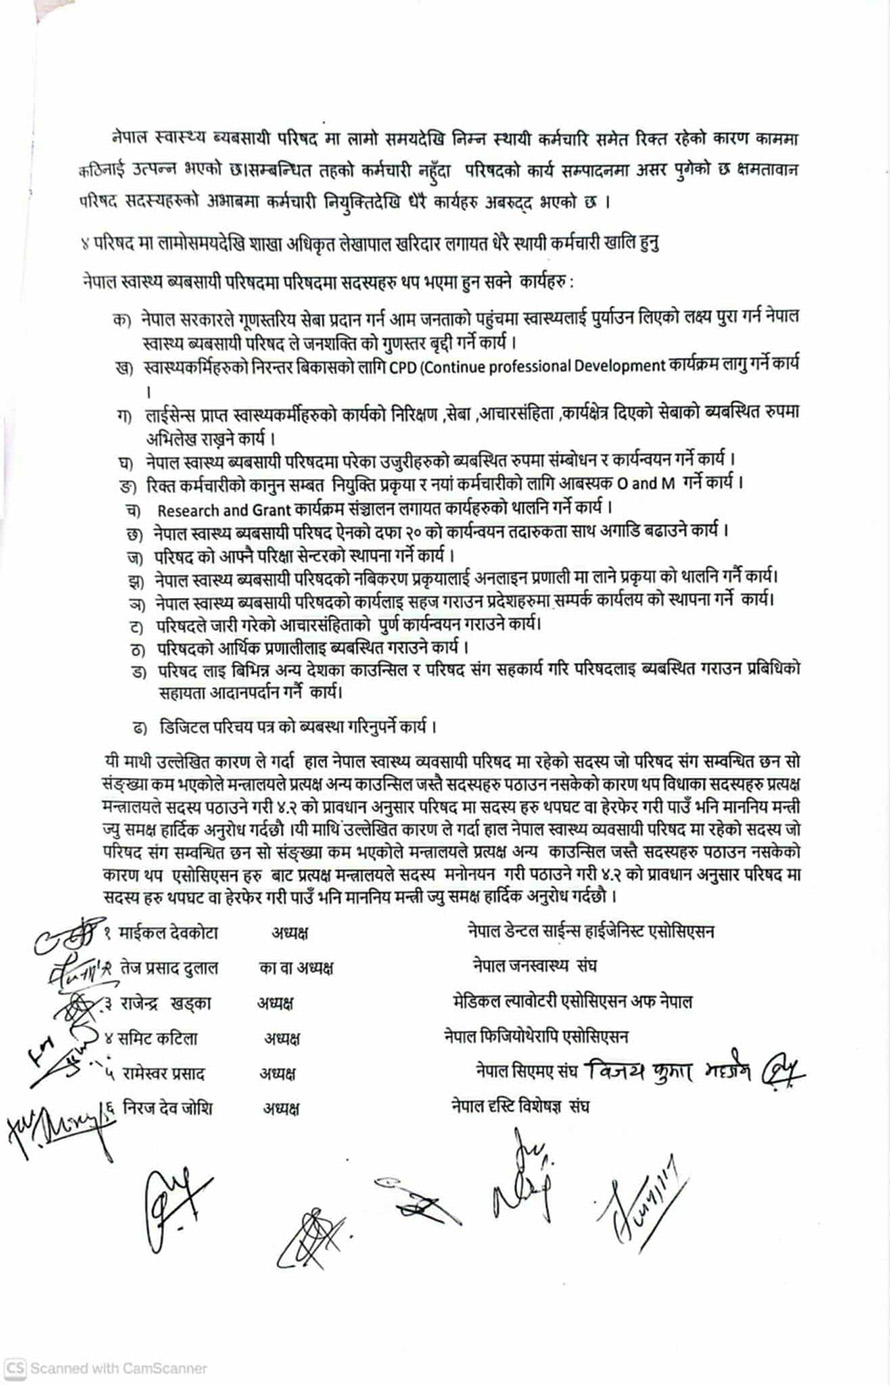 नेपाल स्वास्थ्य ब्यबसायी परिषद मा लामो समयदेखि निम्न स्थायी कर्मचारि समेत रिक्त रहेको कारण काममा
कठिनाई उत्पन्न भएको छ।सम्बन्धित तहको कर्मचारी नहुँदा परिषदको कार्य सम्पादनमा असर पुगेको छ क्षमतावान
परिषद सदस्यहरुको अभाबमा कर्मचारी नियुक्तिदेखि धेरै कार्यहरु अबरुद्द भएको छ ।
४ परिषद मा लामोसमयदेखि शाखा अधिकृत लेखापाल खरिदार लगायत धेरै स्थायी कर्मचारी खालि हुनु
नेपाल स्वास्थ्य ब्यबसायी परिषदमा परिषदमा सदस्यहरु थप भएमा हुन सक्ने कार्यहरु :
क) नेपाल सरकारले गूणस्तरिय सेबा प्रदान गर्न आम जनताको पहुंचमा स्वास्थ्यलाई पुर्याउन लिएको लक्ष्य पुरा गर्न नेपाल
स्वास्थ्य ब्यबसायी परिषद ले जनशक्ति को गुणस्तर बृद्दी गर्ने कार्य ।
ख) स्वास्थ्यकर्मिहरुको निरन्तर बिकासको लागि CPD (Continue professional Development कार्यक्रम लागु गर्ने कार्य
।
ग) लाईसेन्स प्राप्त स्वास्थ्यकर्मीहरुको कार्यको निरिक्षण ,सेबा ,आचारसंहिता ,कार्यक्षेत्र दिएको सेबाको ब्यबस्थित रुपमा
अभिलेख राख्नने कार्य ।
घ) नेपाल स्वास्थ्य ब्यबसायी परिषदमा परेका उजुरीहरुको ब्यबस्थित रुपमा संम्बोधन र कार्यन्वयन गर्ने कार्य ।
ङ) रिक्त कर्मचारीको कानुन सम्बत नियुक्ति प्रकृया र नयां कर्मचारीको लागि आबस्यक O and M गर्ने कार्य ।
च) Research and Grant कार्यक्रम संञ्चालन लगायत कार्यहरुको थालनि गर्ने कार्य ।
छ) नेपाल स्वास्थ्य ब्यबसायी परिषद ऐनको दफा २० को कार्यन्वयन तदारुकता साथ अगाडि बढाउने कार्य ।
ज) परिषद को आफ्नै परिक्षा सेन्टरको स्थापना गर्ने कार्य ।
झ) नेपाल स्वास्थ्य ब्यबसायी परिषदको नबिकरण प्रकृयालाई अनलाइन प्रणाली मा लाने प्रकृया को थालनि गर्नै कार्य।
ञ) नेपाल स्वास्थ्य ब्यबसायी परिषदको कार्यलाइ सहज गराउन प्रदेशहरुमा सम्पर्क कार्यलय को स्थापना गर्ने कार्य।
ट) परिषदले जारी गरेको आचारसंहिताको पुर्ण कार्यन्वयन गराउने कार्य।
ठ) परिषदको आर्थिक प्रणालीलाइ ब्यबस्थित गराउने कार्य ।
ड) परिषद लाइ बिभिन्न अन्य देशका काउन्सिल र परिषद संग सहकार्य गरि परिषदलाइ ब्यबस्थित गराउन प्रबिधिको
सहायता आदानपर्दान गर्नै कार्य।
ढ) डिजिटल परिचय पत्र को ब्यबस्था गरिनुपर्ने कार्य ।
यी माथी उल्लेखित कारण ले गर्दा हाल नेपाल स्वास्थ्य व्यवसायी परिषद मा रहेको सदस्य जो परिषद संग सम्वन्धित छन सो
संङ्ख्या कम भएकोले मन्त्रालयले प्रत्यक्ष अन्य काउन्सिल जस्तै सदस्यहरु पठाउन नसकेको कारण थप विधाका सदस्यहरु प्रत्यक्ष
मन्त्रालयले सदस्य पठाउने गरी ४.२ को प्रावधान अनुसार परिषद मा सदस्य हरु थपघट वा हेरफेर गरी पाउँ भनि माननिय मन्त्री
ज्यु समक्ष हार्दिक अनुरोध गर्दछौ ।यी माथि उल्लेखित कारण ले गर्दा हाल नेपाल स्वास्थ्य व्यवसायी परिषद मा रहेको सदस्य जो
परिषद संग सम्वन्धित छन सो संङ्ख्या कम भएकोले मन्त्रालयले प्रत्यक्ष अन्य काउन्सिल जस्तै सदस्यहरु पठाउन नसकेको
कारण थप एसोसिएसन हरु बाट प्रत्यक्ष मन्त्रालयले सदस्य मनोनयन गरी पठाउने गरी ४.२ को प्रावधान अनुसार परिषद मा
सदस्य हरु थपघट वा हेरफेर गरी पाउँ भनि माननिय मन्त्री ज्यु समक्ष हार्दिक अनुरोध गर्दछौ ।
१ माईकल देवकोटा अध्यक्ष नेपाल डेन्टल साईन्स हाईजेनिस्ट एसोसिएसन
२ तेज प्रसाद दुलाल का वा अध्यक्ष नेपाल जनस्वास्थ्य संघ
३ राजेन्द्र खड्का अध्यक्ष मेडिकल ल्यावोटरी एसोसिएसन अफ नेपाल
४ समिट कटिला अध्यक्ष नेपाल फिजियोथेरापि एसोसिएसन
५ रामेस्वर प्रसाद अध्यक्ष नेपाल सिएमए संघ विजय कुमार
६ निरज देव जोशि अध्यक्ष नेपाल दृस्टि विशेषज्ञ संघ
CS Scanned with CamScanner